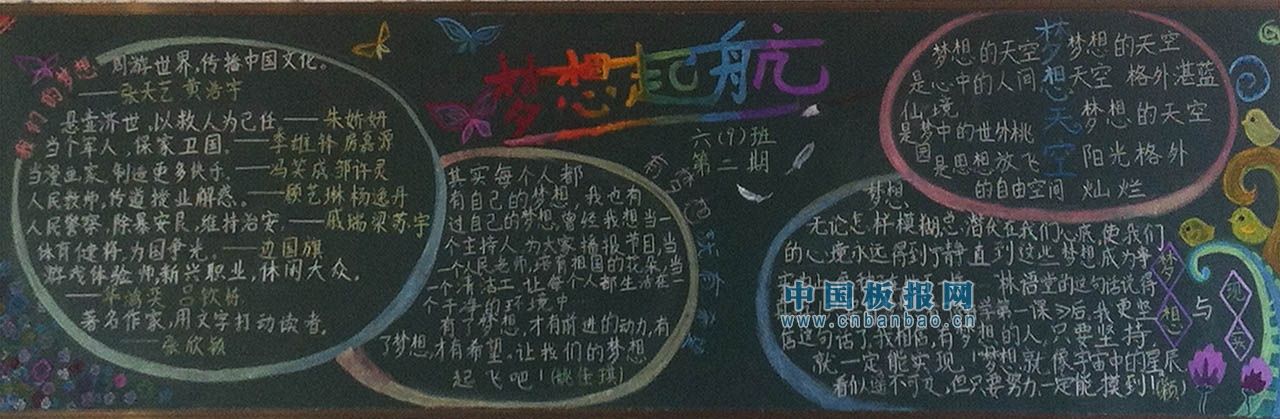 我们的梦想
周游世界,传播中国文化。
——张天艺 黄浩宇
悬壶济世,以救人为己任——朱娇妍
当个军人,保家卫国。——李雄祥 房嘉源
当漫画家,制造更多快乐。——冯笑成 邹许灵
人民教师,传道授业解惑。——顾艺琳 杨逸丹
人民警察,除暴安民,维持治安,——戚瑞 梁苏宇
体育健将,为国争光。——边国旗
游戏体验师,新兴职业,休闲大众。
著名作家,用文字打动读者。
——张欣颖
梦想起航
六(9)班
第二期
其实每个人都
有自己的梦想,我也有
过自己的梦想,曾经我想当一
个主持人,为大家播报节目,当
一个人民老师,培育祖国的花朵,当
一个清洁工,让每个人都生活在一
个干净的环境中。
有了梦想,才有前进的动力,有
了梦想,才有希望。让我们的梦想
起飞吧!
有梦想就有希望
梦想天空
梦想的天空
是心中的人间
仙境
是梦中的世外桃
园
是思想放飞
的自由空间
梦想的天空
天空 格外湛蓝
梦想的天空
阳光格外
灿烂
梦想
无论怎样模糊,总潜伏在我们心底,使我们
的心境永远得到宁静,直到这些梦想成为事
林语堂的这句话说得
学第一课》后,我更坚
信这句话了,我相信,有梦想的人,只要坚持
就一定能实现!梦想,就像宇宙中的星辰
看似遥不可及,但只要努力,一定能摸到!(颖)
梦想与
中国板报网
www.cnbanbao.cn